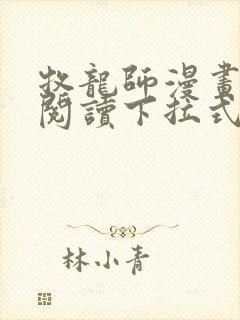 牧龍師漫畫
閱讀下拉式
林小青